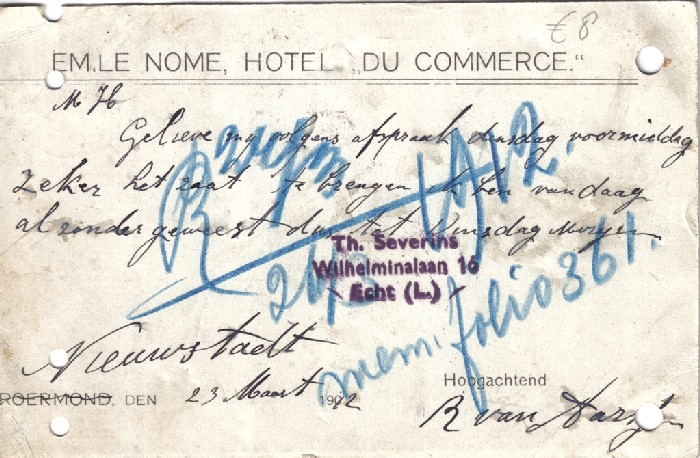 € 8
EMILE NOME, HOTEL „DU COMMERCE.“
M H
Gelieve my volgens afspraak dinsdag voormiddag
zeker het zaat te brengen ik ben vandaag
al zonder geweest dus tot Dinsdag Morgen
R
Th. Severins
Wilhelminalaan 16
Echt (L.)
mem. folio 361.
Nieuwstadt
Hoogachtend
ROERMOND, DEN 23 Maart 1912
R van